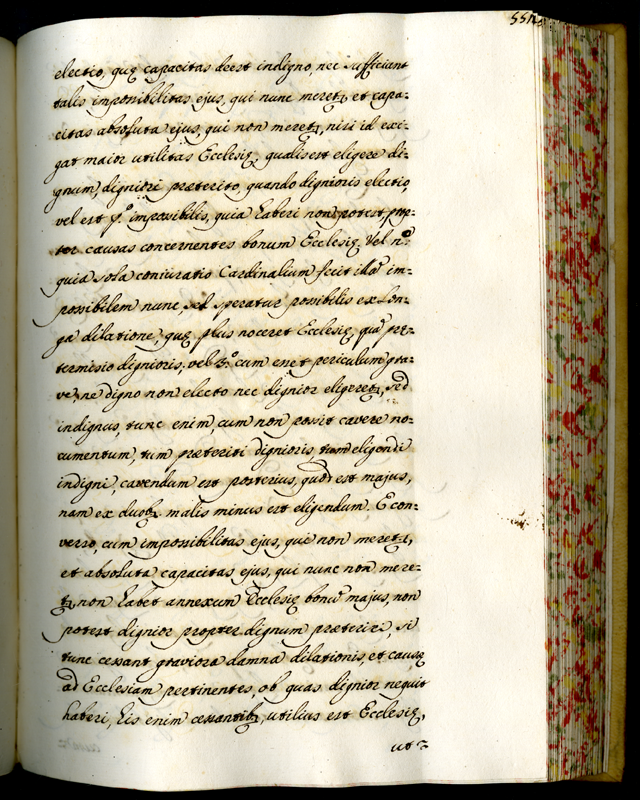 electio, quę capacitas deest indigno, nec sufficiunt
talis impossibilitas ejus, qui nunc meretꝛ, et capa-
citas absoluta ejus, qui non meretꝛ, nisi id exi-
gat maior utilitas Ecclesię, qualis est eligere di-
gnum, digniori præterito, quando dignioris electio
vel est pº impossibilis, quia haberi non potest prop-
ter causas concernentes bonum Ecclesię. Vel
quia sola coniuratio Cardinalium fecit illã im-
possibilem nunc, sed speratur possibilis ex lon-
ga dilatione, quę plus noceret Ecclesię, quã prę-
termisio dignioris, vel 3º cum esset periculum gra-
ve, ne digno non electo nec dignior eligeretꝛ, sed
indignus, tunc enim cum non possit cavere no-
cumentum, tum præteriti dignioris, tum eligendi
indigni, cavendum est posterius, quod est majus,
nam ex duobꝫ malis minus est eligendum. E con-
verso, cum impossibilitas ejus, qui non meretꝛ,
et absoluta capacitas ejus, qui nunc non mere-
tꝛ, non habet annexum Ecclesię bonũ majus, non
potest dignior propter dignum præteriri, si
tunc cessant graviora damna dilationis, et causę
ad Ecclesiam pertinentes, ob quas dignior nequit
haberi, his enim cessantibꝫ, utilius est Ecclesię,
ut